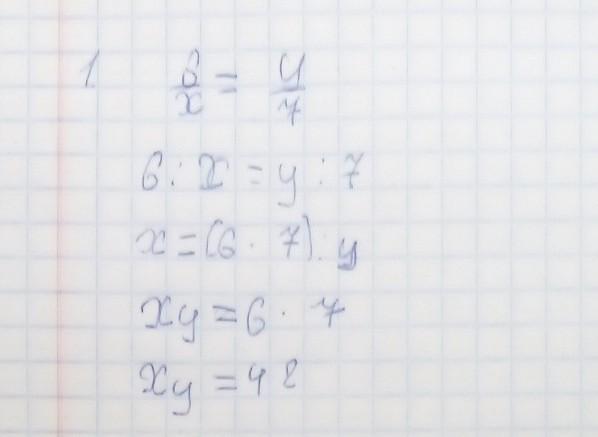 1 6/x = y/7
6 : x = y : 7
x = (6 · 7) : y
xy = 6 · 7
xy = 42